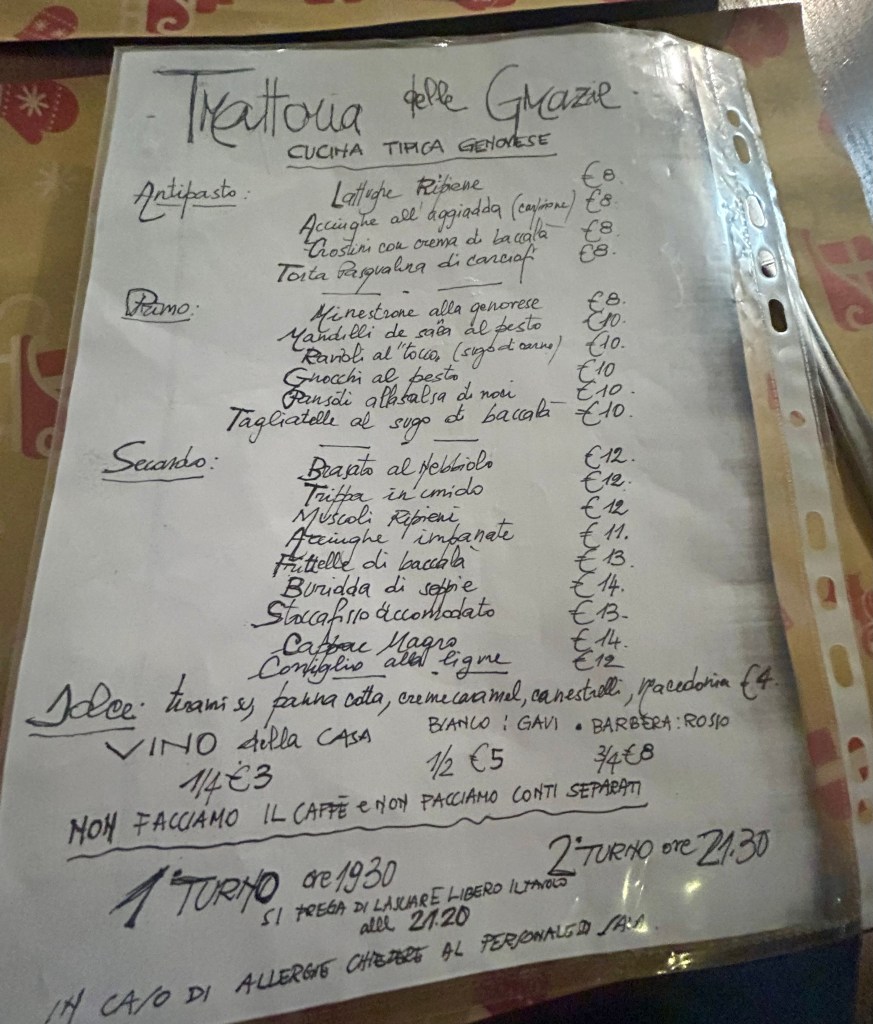 Trattoria delle Grazie
CUCINA TIPICA GENOVESE
Antipasto: Lattughe Ripiene €8.
Acciughe all'aggiadda (carpione) €8.
Crostini con crema di baccalà €8.
Torta Pasqualina di carciofi €8.
Primo: Minestrone alla genovese €8.
Mandilli de sæa al pesto €10.
Ravioli al "tocco" (sugo di carne) €10.
Gnocchi al pesto €10
Pansoti alla salsa di noci €10.
Tagliatelle al sugo di baccalà €10.
Secondo: Brasato al Nebbiolo €12.
Trippa in umido €12.
Muscoli Ripieni €12
Acciughe impanate €11.
Frittelle di baccalà €13
Buridda di seppie €14.
Stoccafisso accomodato €13-
Cappon Magro €14.
Coniglio alla ligure €12
Dolce: tirami sù, panna cotta, creme caramel, canestrelli, macedonia €4.
VINO della CASA BIANCO: GAVI • BARBERA: ROSSO
1/4 €3 1/2 €5 3/4 €8
NON FACCIAMO IL CAFFÈ e NON FACCIAMO CONTI SEPARATI
1° TURNO ore 1930 2° TURNO ore 21.30
SI PREGA DI LASCIARE LIBERO IL TAVOLO
alle 21.20
IN CASO DI ALLERGIE CHIEDERE AL PERSONALE DI SALA.